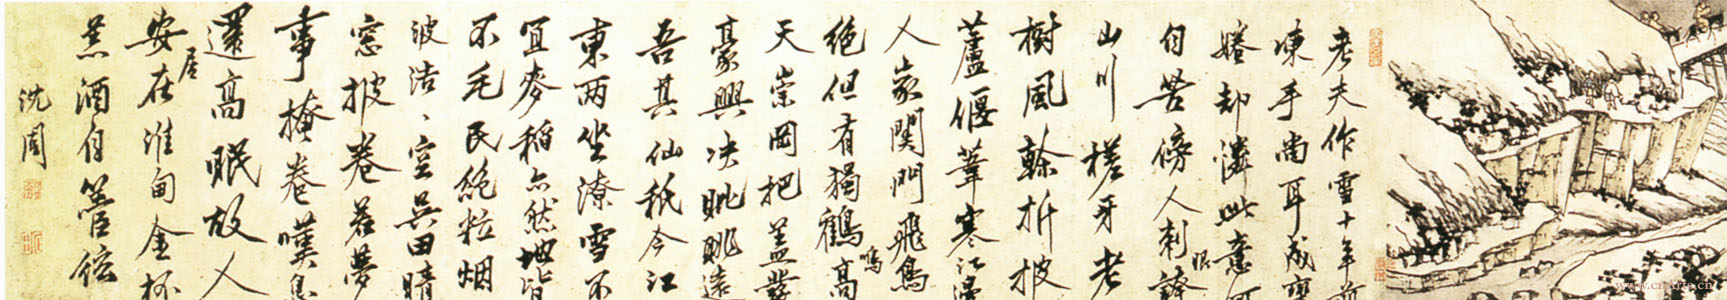 老夫作雪十年前
凍手尚耳成
婘却憐此意
自苦傍人刺
山川槎牙老
樹風榦折披
蘆偃葦寒江
人家閉門飛鳥
絶但有獨鶴鳴高
天崇岡把盖
豪興决眦眺遠
吾其仙秖今江
東兩坐潦雪不
宜麥稻亦然地皆
不毛民絶粒烟
波浩〻空吳田晴
窓披卷若夢
事掩卷嘆息
還高眠故人
安居在淮甸金杯
羔酒自管絃
沈周
www.cnarts.cn